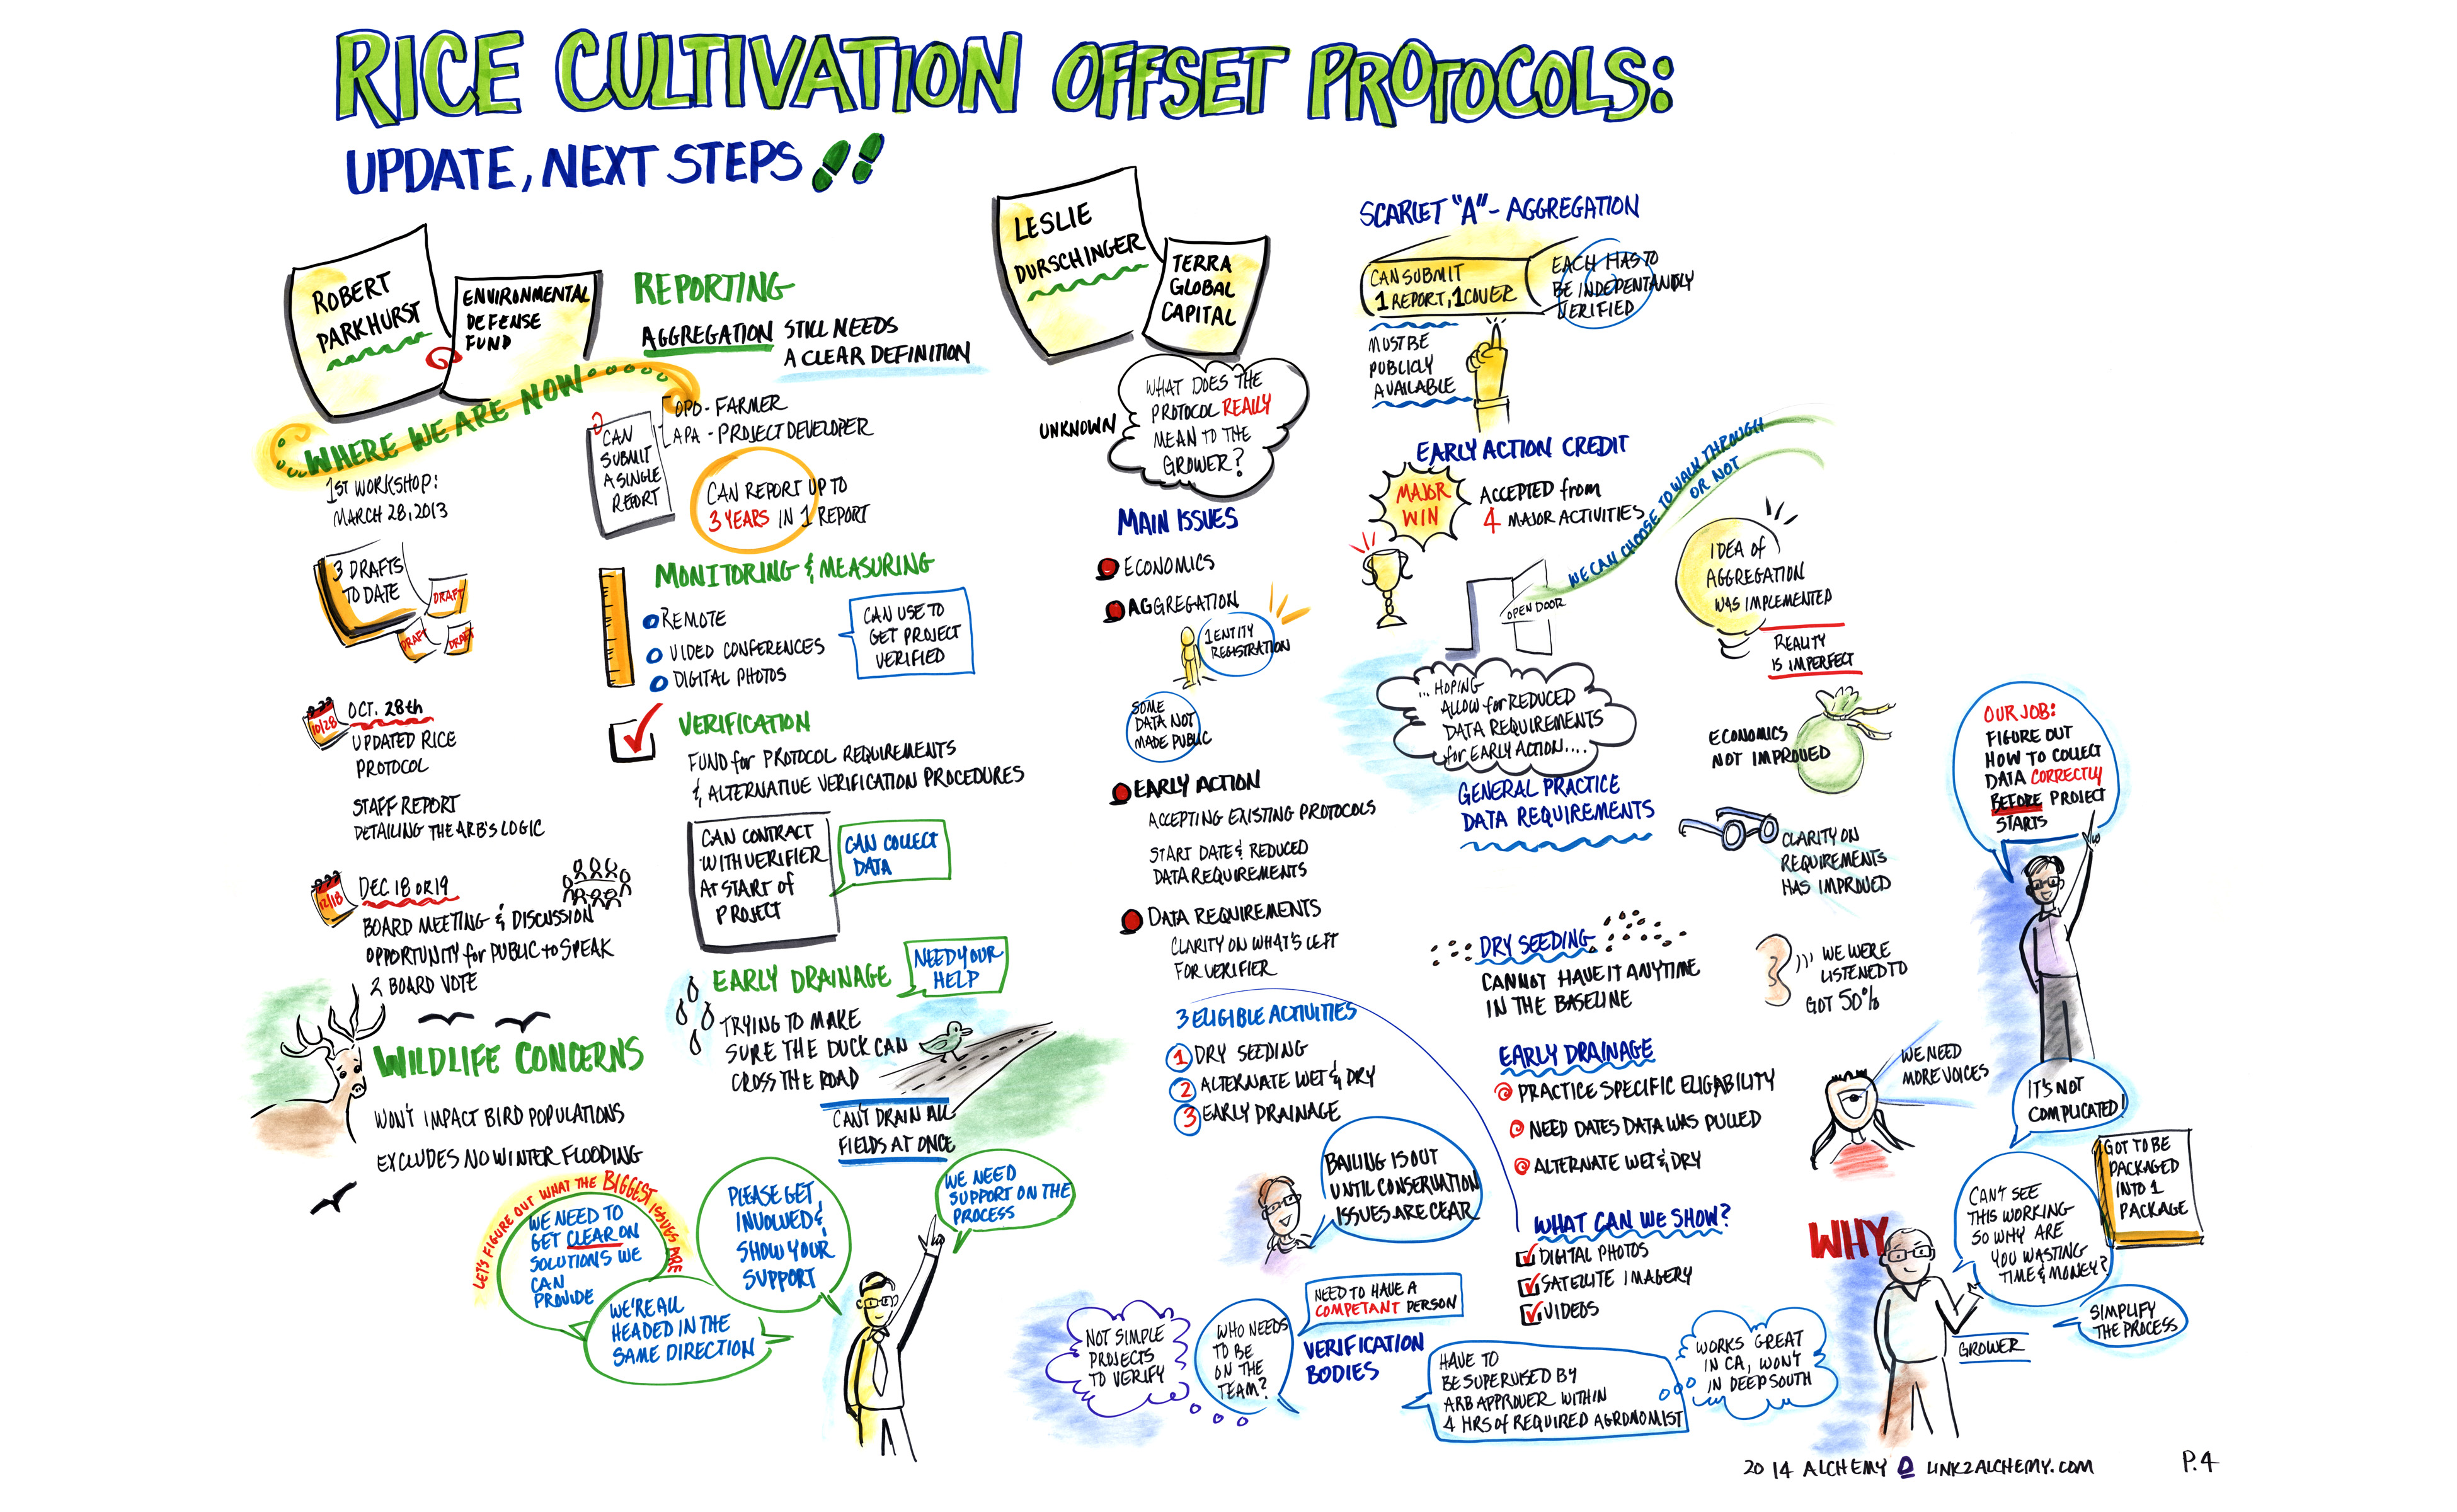 RICE CULTIVATION OFFSET PROTOCOLS:
UPDATE, NEXT STEPS
ROBERT
PARKHURST
ENVIRONMENTAL
DEFENSE
FUND
WHERE WE ARE NOW
1ST WORKSHOP:
MARCH 28, 2013
3 DRAFTS
TO DATE
DRAFT
DRAFT
DRAFT
10/28
OCT. 28th
UPDATED RICE
PROTOCOL
STAFF REPORT
DETAILING THE ARB'S LOGIC
12/18
DEC 18 OR 19
BOARD MEETING & DISCUSSION
OPPORTUNITY for PUBLIC to SPEAK
2 BOARD VOTE
WILDLIFE CONCERNS
WON'T IMPACT BIRD POPULATIONS
EXCLUDES NO WINTER FLOODING
LET'S FIGURE OUT WHAT THE BIGGEST ISSUES ARE
WE NEED TO
GET CLEAR ON
SOLUTIONS WE
CAN
PROVIDE
WE'RE ALL
HEADED IN THE
SAME DIRECTION
PLEASE GET
INVOLVED &
SHOW YOUR
SUPPORT
WE NEED
SUPPORT ON THE
PROCESS
REPORTING
AGGREGATION STILL NEEDS
A CLEAR DEFINITION
CAN
SUBMIT
A SINGLE
REPORT
OPO - FARMER
APA - PROJECT DEVELOPER
CAN REPORT UP TO
3 YEARS IN 1 REPORT
MONITORING & MEASURING
REMOTE
VIDEO CONFERENCES
DIGITAL PHOTOS
CAN USE TO
GET PROJECT
VERIFIED
VERIFICATION
FUND for PROTOCOL REQUIREMENTS
& ALTERNATIVE VERIFICATION PROCEDURES
CAN CONTRACT
WITH VERIFIER
AT START of
PROJECT
CAN COLLECT
DATA
EARLY DRAINAGE
NEED YOUR
HELP
TRYING TO MAKE
SURE THE DUCK CAN
CROSS THE ROAD
CAN'T DRAIN ALL
FIELDS AT ONCE
LESLIE
DURSCHINGER
TERRA
GLOBAL
CAPITAL
UNKNOWN
WHAT DOES THE
PROTOCOL REALLY
MEAN TO THE
GROWER?
MAIN ISSUES
ECONOMICS
AGGREGATION
1 ENTITY
REGISTRATION
SOME
DATA NOT
MADE PUBLIC
EARLY ACTION
ACCEPTING EXISTING PROTOCOLS
START DATE & REDUCED
DATA REQUIREMENTS
DATA REQUIREMENTS
CLARITY ON WHAT'S LEFT
FOR VERIFIER
3 ELIGIBLE ACTIVITIES
1 DRY SEEDING
2 ALTERNATE WET & DRY
3 EARLY DRAINAGE
BAILING IS OUT
UNTIL CONSERVATION
ISSUES ARE CEAR
NOT SIMPLE
PROJECTS
TO VERIFY
WHO NEEDS
TO BE
ON THE
TEAM?
NEED TO HAVE A
COMPETANT PERSON
VERIFICATION
BODIES
HAVE TO
BE SUPERVISED BY
ARB APPROVER WITHIN
4 HRS of REQUIRED AGRONOMIST
WORKS GREAT
IN CA, WON'T
IN DEEP SOUTH
SCARLET "A" - AGGREGATION
CAN SUBMIT
1 REPORT, 1 COVER
EACH HAS TO
BE INDEPENTANDLY
VERIFIED
MUST BE
PUBLICLY
AVAILABLE
EARLY ACTION CREDIT
MAJOR
WIN
ACCEPTED from
4 MAJOR ACTIVITIES
OPEN DOOR
WE CAN CHOOSE TO WALK THROUGH
OR NOT
...HOPING
ALLOW for REDUCED
DATA REQUIREMENTS
for EARLY ACTION....
GENERAL PRACTICE
DATA REQUIREMENTS
DRY SEEDING
CANNOT HAVE IT ANYTIME
IN THE BASELINE
EARLY DRAINAGE
PRACTICE SPECIFIC ELIGABILITY
NEED DATES DATA WAS PULLED
ALTERNATE WET & DRY
WHAT CAN WE SHOW?
DIGITAL PHOTOS
SATELLITE IMAGERY
VIDEOS
IDEA of
AGGREGATION
WAS IMPLEMENTED
REALITY
IS IMPERFECT
ECONOMICS
NOT IMPROVED
CLARITY ON
REQUIREMENTS
HAS IMPROVED
WE WERE
LISTENED TO
GOT 50%
WE NEED
MORE VOICES
OUR JOB:
FIGURE OUT
HOW TO COLLECT
DATA CORRECTLY
BEFORE PROJECT
STARTS
IT'S NOT
COMPLICATED!
GOT TO BE
PACKAGED
INTO 1
PACKAGE
WHY
CAN'T SEE
THIS WORKING
SO WHY ARE
YOU WASTING
TIME & MONEY?
SIMPLIFY
THE PROCESS
GROWER
2014 ALCHEMY LINK2ALCHEMY.COM
P.4